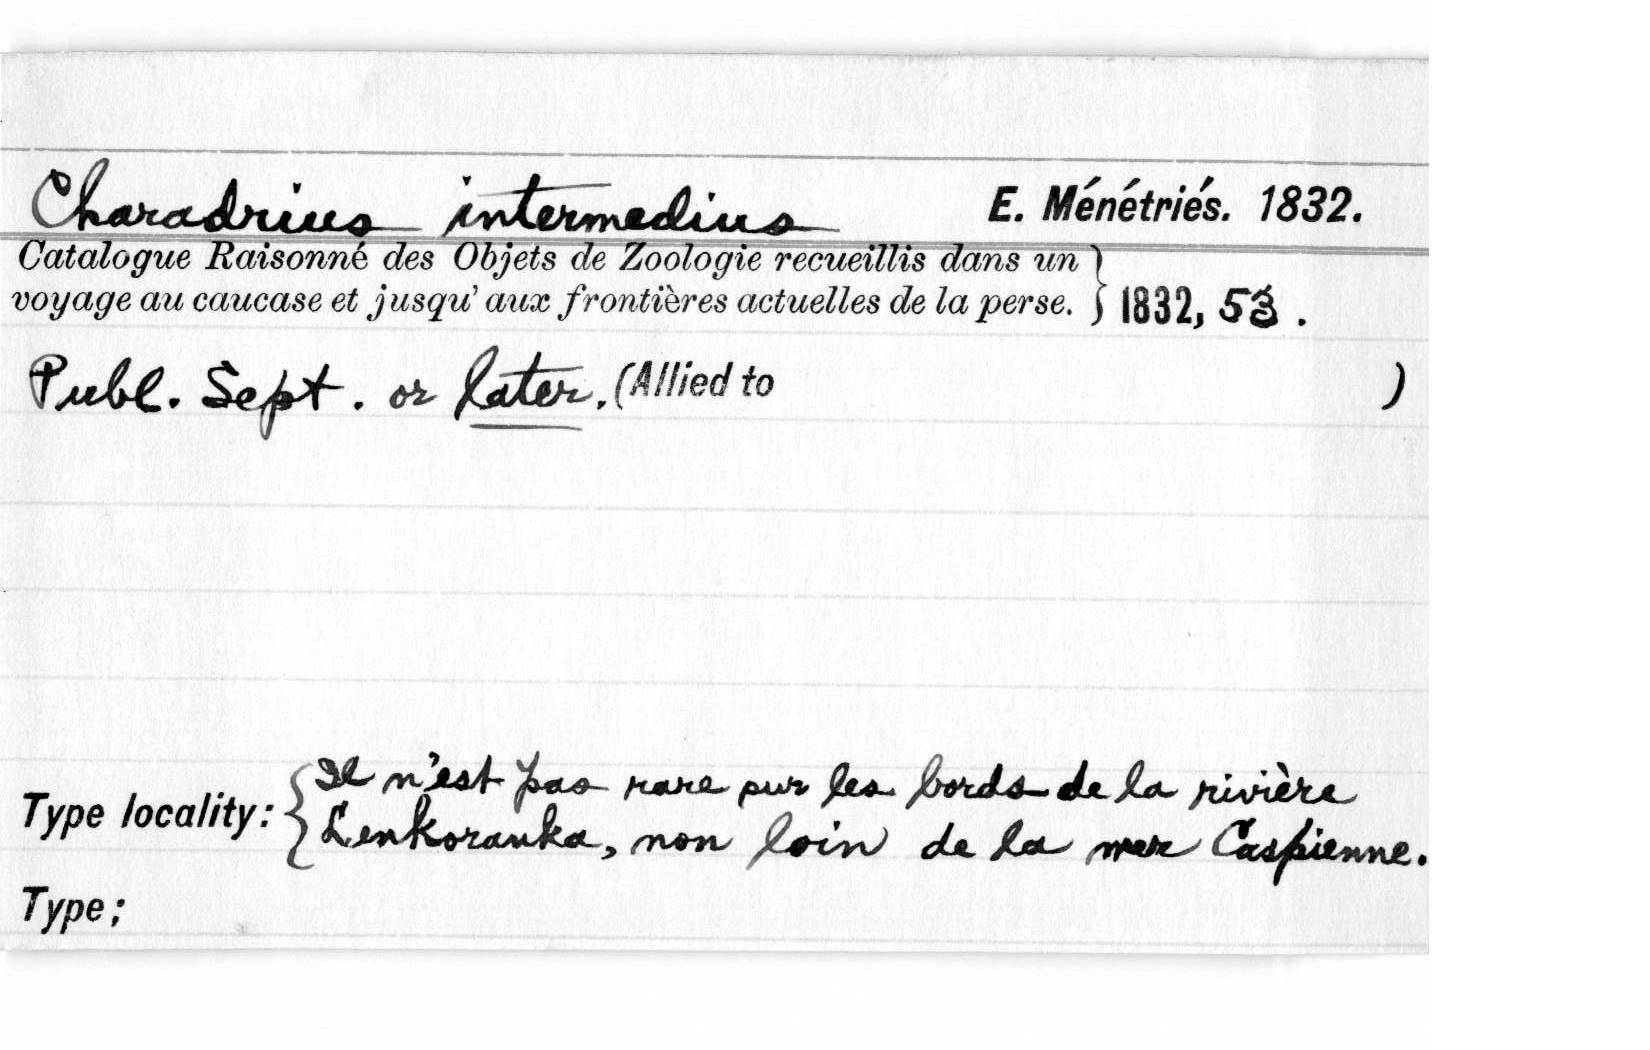 Charadrius intermedius E. Ménétriés. 1832.
Catalogue Raisonné des Objets de Zoologie recueillis dans un
voyage au caucase et jusqu' aux frontières actuelles de la perse. } 1832, 53.
Publ. Sept. or later. (Allied to )
Type locality: { Il n'est pas rare sur les bords de la rivière
Lenkoranka, non loin de la mer Caspienne.
Type;